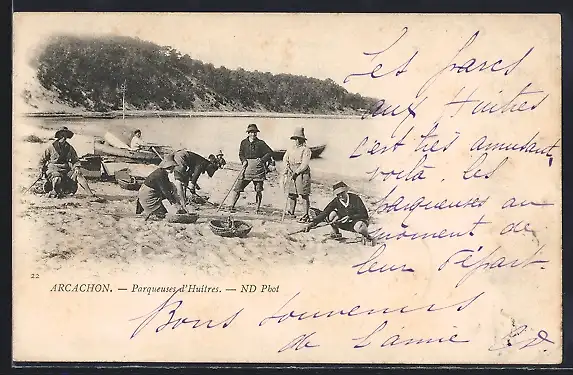 Les parcs
aux Huitres
c'est très amusant,
voilà les
parqueuses au
moment de
leur départ
22
ARCACHON. — Parqueuses d'Huîtres. — ND Phot
Bons souvenirs
de l'amie